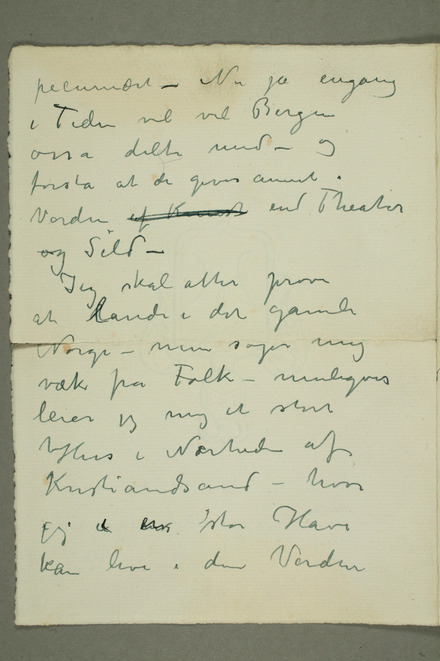 pecuniært – Nu ja engang
i Tiden vil vel Bergen
osså delta med – og
forstå at de gives annet i
Verden af Kunst end Theater
og Sild –
Jeg skal atter prøve
at lande i det gamle
Norge – men søger mig
væk fra Folk – muligvis
leier jeg mig et stort
Hus i Nærheden af
Kristiandsand – hvor
jeg i en stor Have
kan leve i den Verden